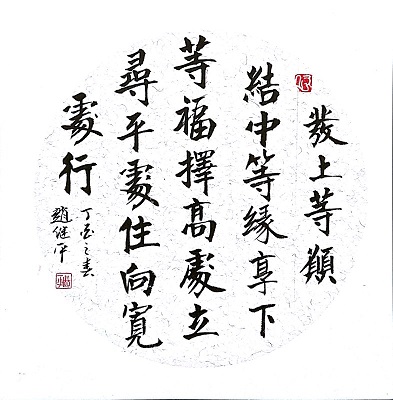 發上等願
結中等緣享下
等福擇高處立
尋平處住向寬
處行
丁酉之春
趙继平